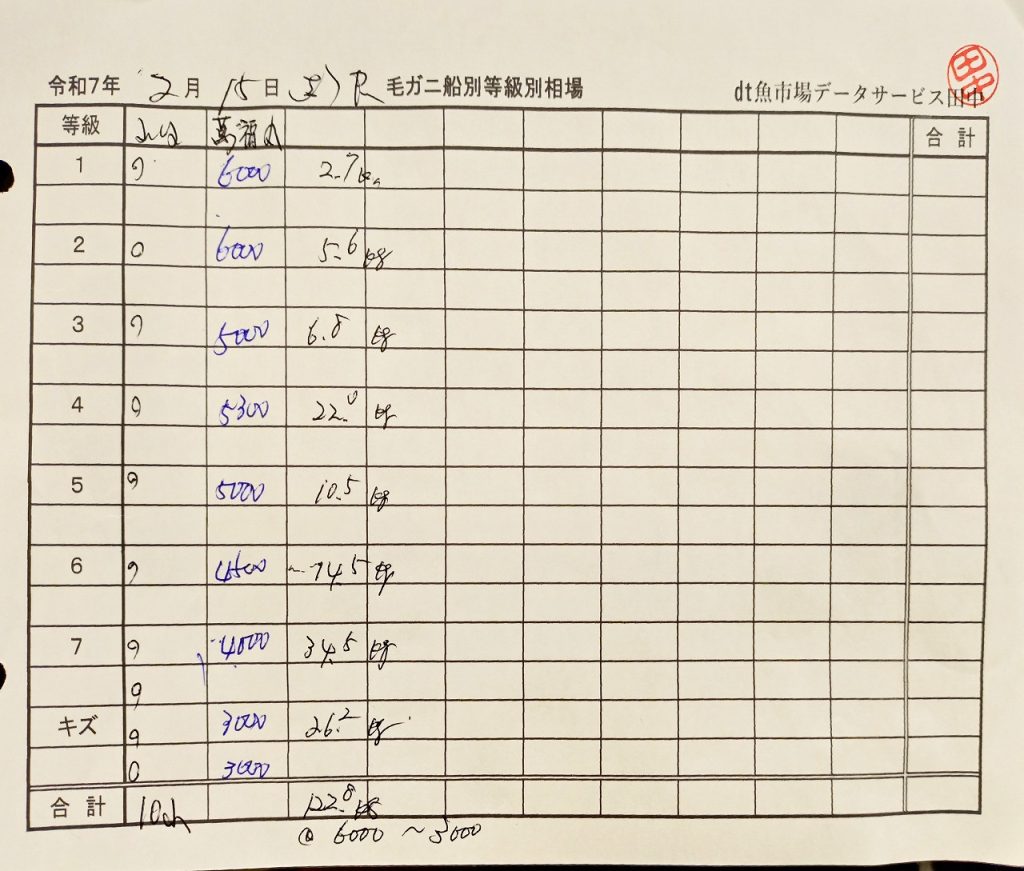 令和7年 2月 15日 (土) 毛ガニ船別等級別相場 dt魚市場データサービス田中
等級 萬福丸 合計
1 6000 2.7kg
2 6000 5.6kg
3 5000 6.8kg
4 5300 22.0kg
5 5000 10.5kg
6 4500 14.5kg
7 4000 34.5kg
キズ 3000 26.2kg
3000
合計 122.8kg
@ 6000 ~ 3000